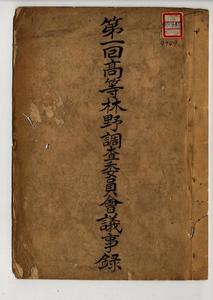 第一回高等林野調査委員會議事錄